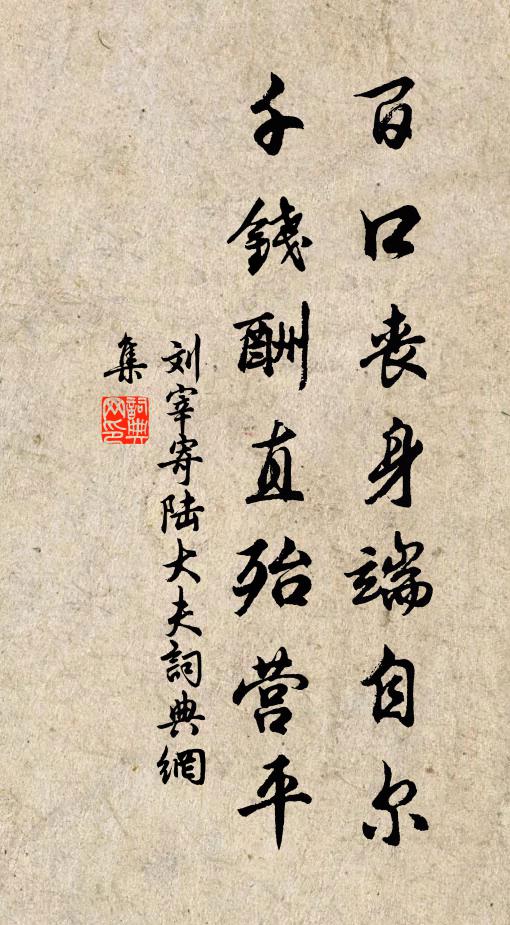 百口丧身端自尔
千錢酬直殆营平
刘宰寄陆大夫詞典網
集
詞典
网印